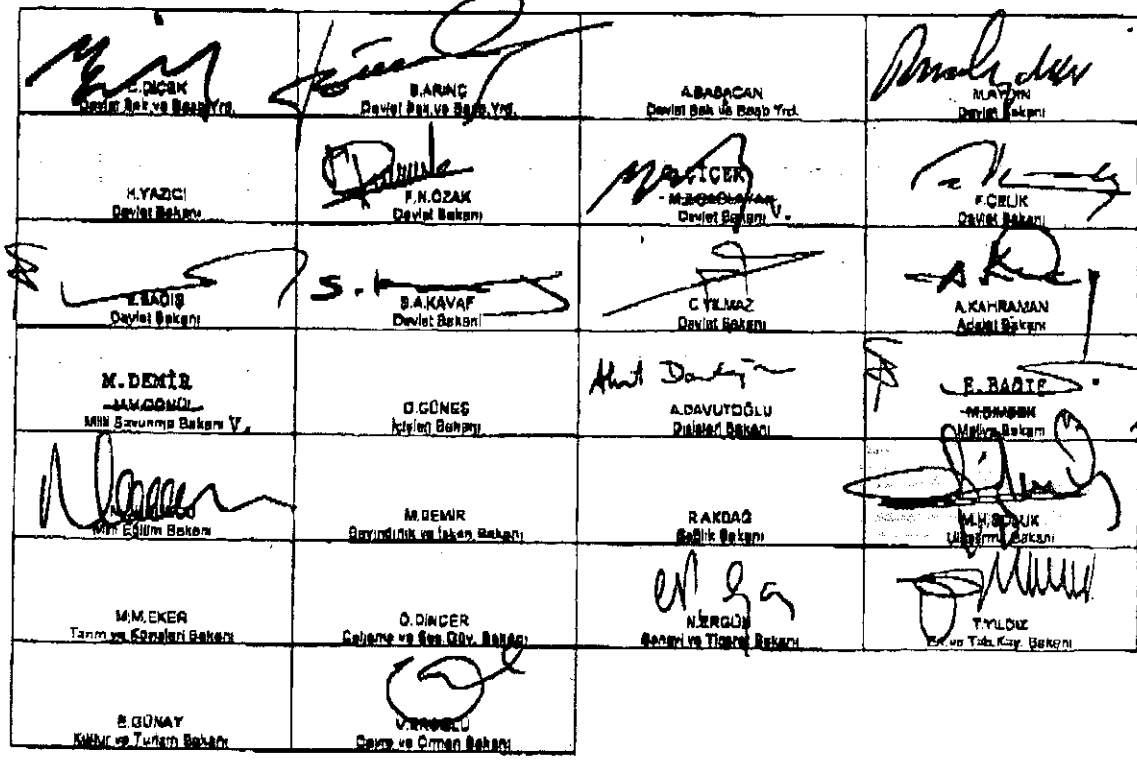 C.ÇİÇEK
Devlet Bak.ve Başb.Yrd.
B.ARINÇ
Devlet Bak.ve Başb.Yrd.
A.BABACAN
Devlet Bak.ve Başb.Yrd.
M.AYDIN
Devlet Bakanı
H.YAZICI
Devlet Bakanı
F.N.ÖZAK
Devlet Bakanı
C.ÇİÇEK
Devlet Bakanı V.
F.ÇELİK
Devlet Bakanı
E.BAĞIŞ
Devlet Bakanı
S.A.KAVAF
Devlet Bakanı
C.YILMAZ
Devlet Bakanı
A.KAHRAMAN
Adalet Bakanı
M.DEMİR
M.V.GÖNÜL
Milli Savunma Bakanı V.
O.GÜNEŞ
İçişleri Bakanı
Ahmt Davutoğlu
A.DAVUTOĞLU
Dışişleri Bakanı
E. BAĞIŞ
M.ŞİMŞEK
Maliye Bakanı
Milli Eğitim Bakanı
M.DEMİR
Bayındırlık ve İskan Bakanı
R.AKDAĞ
Sağlık Bakanı
M.H.SOLUK
Ulaştırma Bakanı
M.M.EKER
Tarım ve Köyişleri Bakanı
Ö.DİNÇER
Çalışma ve Sos.Güv. Bakanı
N.ERGÜN
Sanayi ve Ticaret Bakanı
T.YILDIZ
En.ve Tab.Kay. Bakanı
E.GÜNAY
Kültür ve Turizm Bakanı
V.EROĞLU
Çevre ve Orman Bakanı